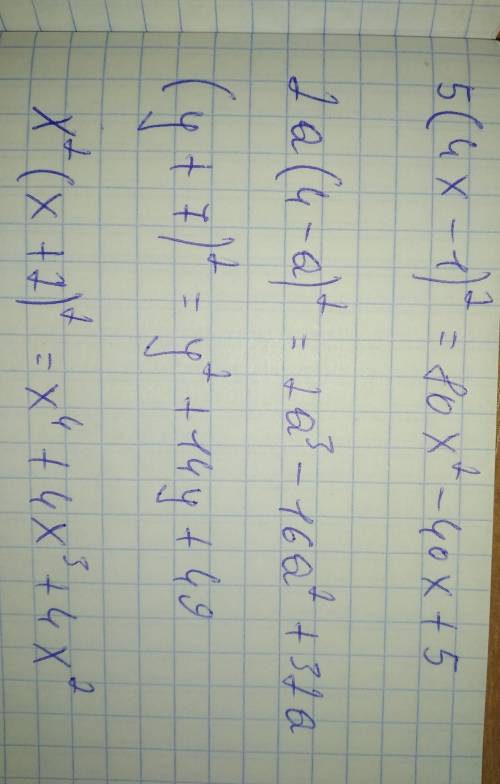 5(4x - 1)² = 80x² - 40x + 5
2a(4 - a)² = 2a³ - 16a² + 32a
(y + 7)² = y² + 14y + 49
x²(x + 2)² = x⁴ + 4x³ + 4x²